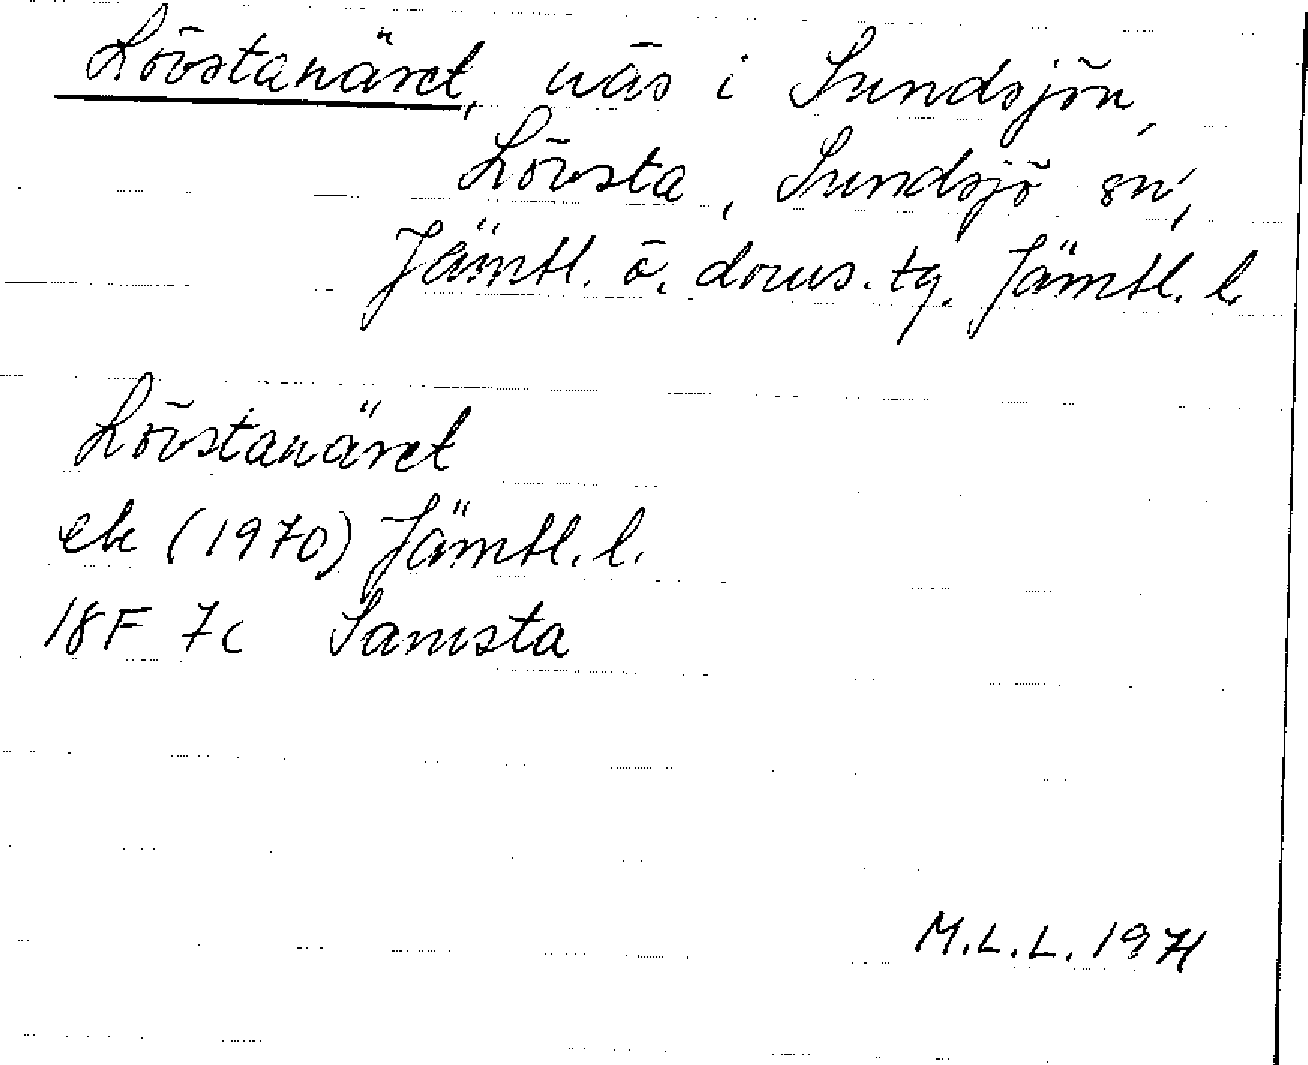 Lövstanäret, näs i Sundsjön,
Lövsta, Sundsjö sn,
Jämtl. ö. doms. tg. Jämtl. l.
Lövstanäret
ek (1970) Jämtl. l.
18F 7c Samsta
M.L.L. 1971